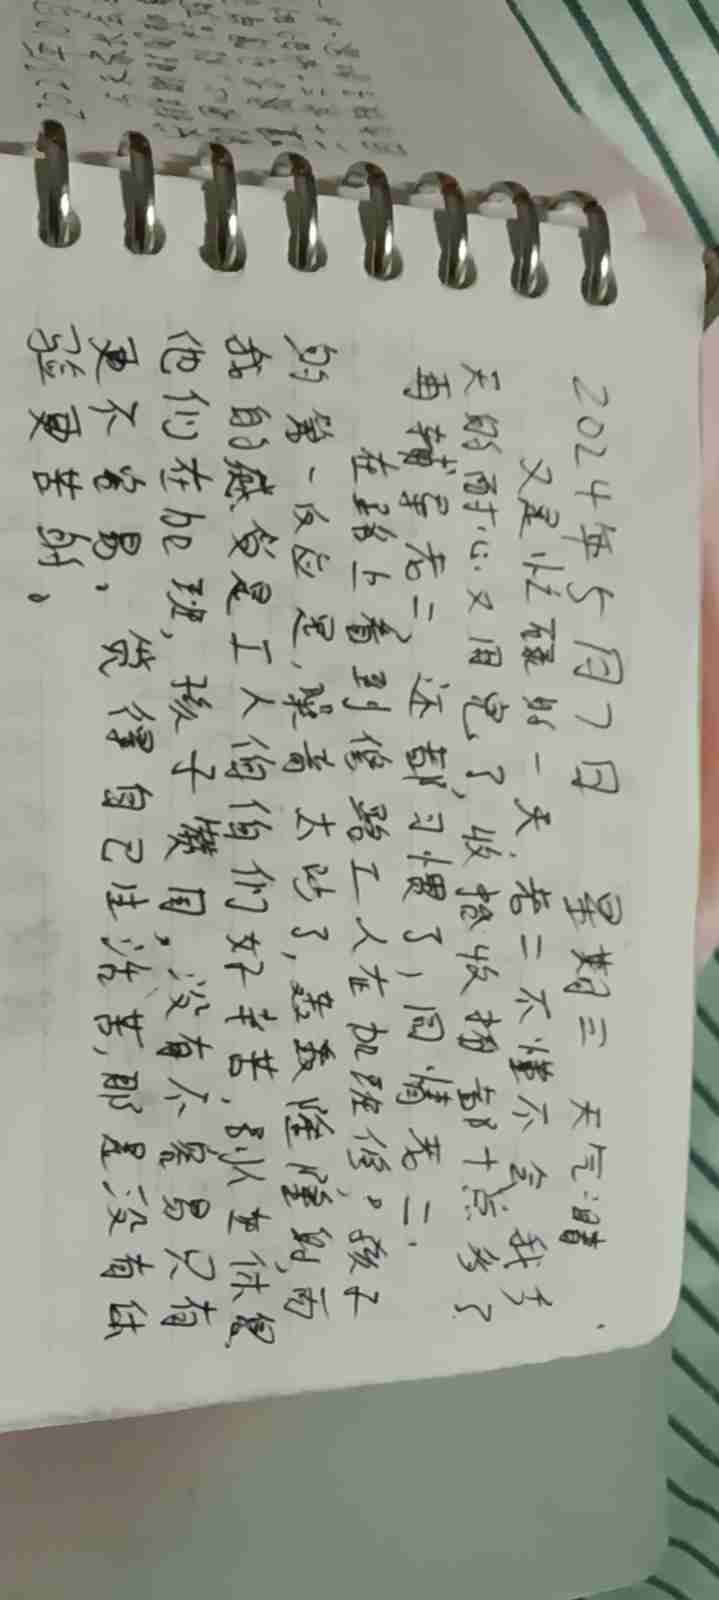 2024年5月7日 星期三 天气:晴
又是忙碌的一天,老二不懂不会我多
天的耐心又用完了,收拾收拾都十点多了
再辅导老二,还都习惯了,同情老二.
在路上看到修路工人在加班修。孩子
的第一反应是,噪音太吵了,轰轰隆隆的,而
我的感觉是工人伯伯们好辛苦,别人在休息
他们在加班,孩子 没有不容易只有
更不容易,觉得自己生活苦,那是没有体
验更苦的。